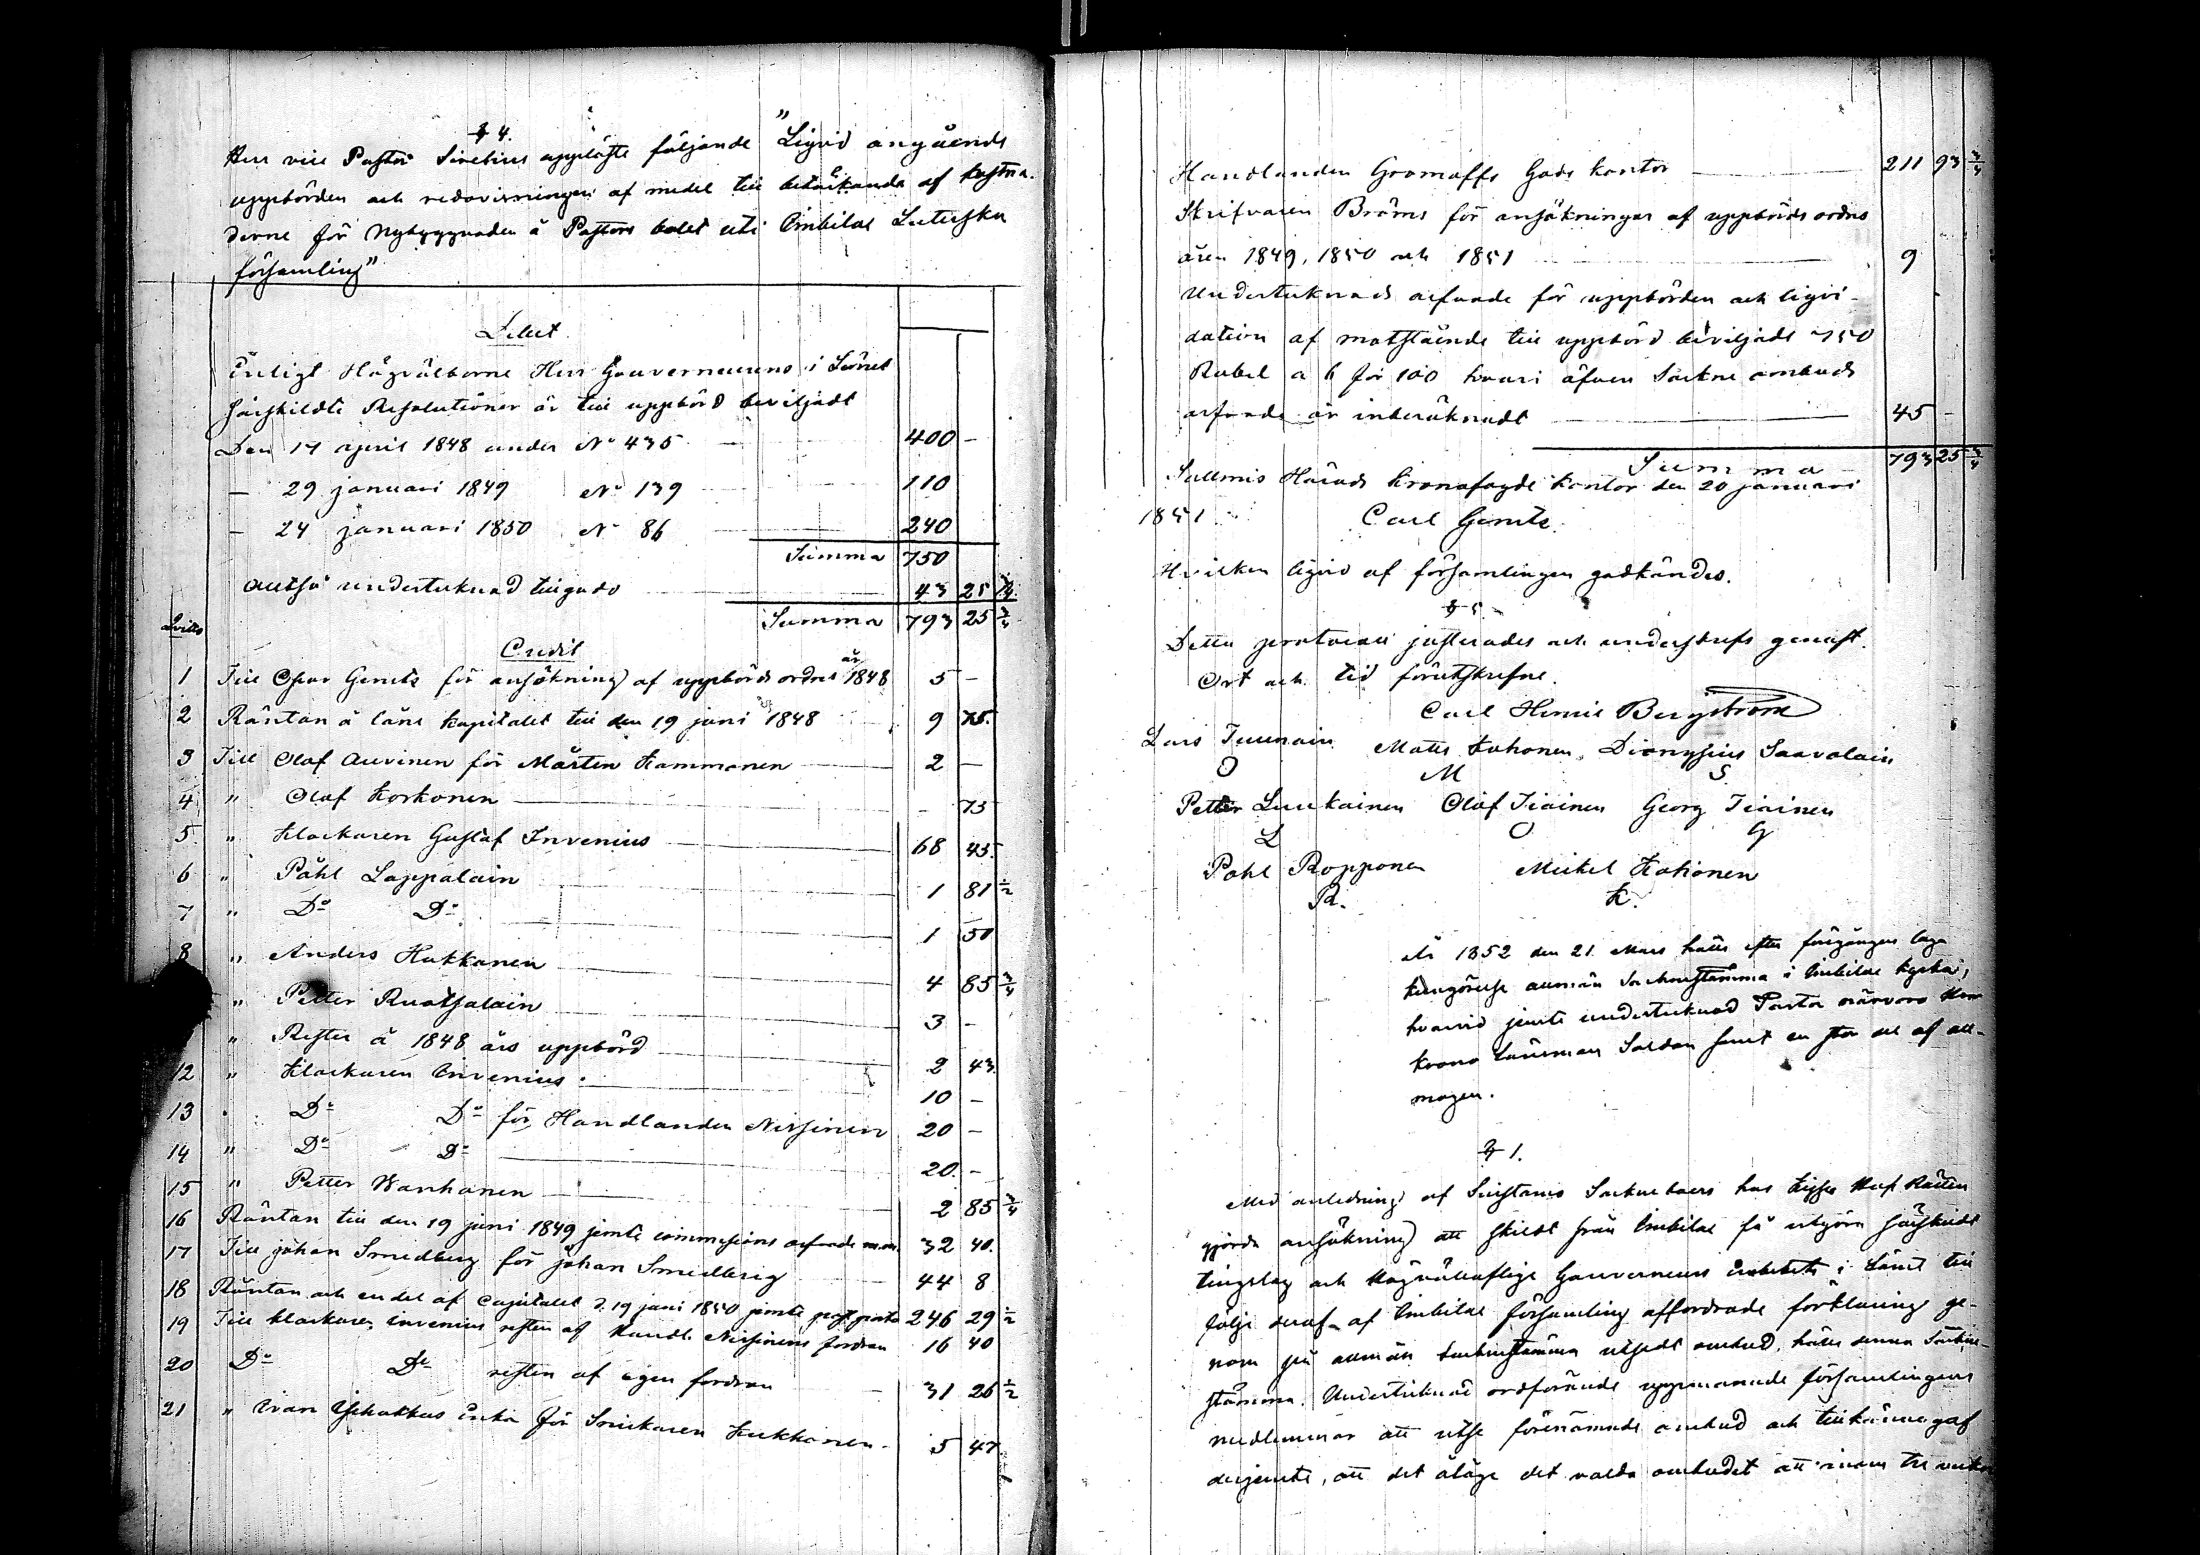 § 4.
Herr vice Pastor Sirelius uppläste följande "Liqvid angående
uppbörden och redovisningen af medel till betäckande af kostna-
derne för Nybyggnaden å Pastors bolet uti Imbilax Luterska
församling"
Debet
Enligt Högvälborne Herr Gouverneurens i Länet
särskildte Resolutioner är till uppbörd beviljadt
Den 17 april 1848 under No 435 400 –
– 29 januari 1849 No 139 110
– 24 januari 1850 No 86 240
Summa 750
Alltså undertecknad tillgodo 43 25 3/4
Summa 793 25 3/4
Qvitto
Credit
1 Till Gerutz för ansökning af uppbörds ordres år 1848 5 –
2 Räntan å låne kapitalet till den 19 juni 1848 9 75.
3 Till Olof Auvinen för Mårten Kammonen 2 –
4 " Olof Korkonen – 75
5 " Klockaren Gustaf Invenius 68 45.
6 " Påhl Lappalain 1 81 1/2
7 " Do Do 1 50
8 " Anders Hakkanen 4 85 3/4
" Petter Ruotsalain 3 –
" Rester å 1848 års uppbörd 2 43.
12 " Klockaren Invenius 10 –
13 " Do Do för Handlanden Nissinen 20 –
14 " Do Do 20. –
15 " Petter Wanhanen 2 85 3/4
16 Räntan till den 19 juni 1849 jemte commissions arfvode m.m. 32 40.
17 Till johan Smedberg för johan Smedberg 44 8
18 Räntan och en del af Capitalet d. 19 juni 1850 jemte post porto 246 29 1/2
19 Till klockaren Invenius resten af Handl. Nissinens fordran 16 40
20 Do Do resten af egen fordran 31 26 1/2
21 " Ivan enka för Snickaren Kukkonen 5 47
Handlanden Gromoffs Gods kontor 211 93 3/4
Skrifvaren Bräms för ansökningar af uppbörds ordres
åren 1849, 1850 och 1851 9
Undertecknads arfvode för uppbörden och liqvi-
dation af motstående till uppbörd beviljade 750
Rubel a 6 för 100 hvari äfven Sockne ombuds
arfvode är inberäknadt 45 –
Summa 793 25 3/4
Sallmis Härads Kronofogde kontor den 20 januari
1851 Carl Gerutz
Hvilken liqvid af församlingen godkändes.
§ 5
Detta protocoll justerades och underskrefs genast.
Ort och tid förutskrefne.
Carl Henric Bergström
Lars Tuunain Matts Kahonen Dionysius Saavalain
O M S
Petter Luukainen Olof Tiainen Georg Tiainen
L O G
Påhl Ropponen Mickel Kohonen
R. K.
År 1852 den 21 Mars hölls efter föregången laga
kungörelse allmän Sockenstämma i Imbilax kyrka,
hvarvid jemte undertecknad Pastor närvoro Herr
Krono Länsman Saldan samt en stor del af all-
mogen.
§ 1.
Med anledning af Suistamo Sockneboers hos Kejserl. Hof Rätten
gjorda ansökning att skildt från Imbilax få utgöra särskildt
tingslag och Högvälloflige Gouverneurs Embetets i Länet till
följe deraf af Imbilax församling affordrade förklaring ge-
nom på allmän Sockenstämma utsedt ombud, hölls denna Socken-
stämma. Undertecknad ordförande uppmanade församlingens
medlemmar att utse förenämnde ombud och tillkännagaf
derjemte, att det ålåge det valda ombudet att inom tre veckor